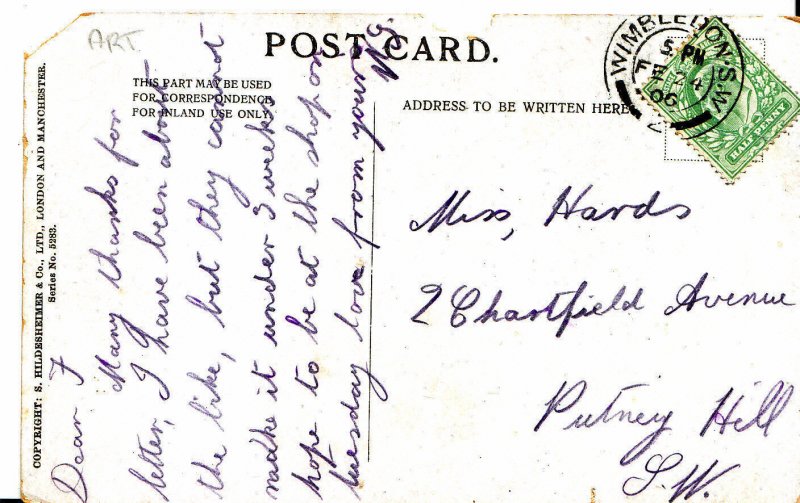 ART
POST CARD.
THIS PART MAY BE USED
FOR CORRESPONDENCE
FOR INLAND USE ONLY
ADDRESS TO BE WRITTEN HERE
COPYRIGHT: S. HILDESHEIMER & Co., LTD., LONDON AND MANCHESTER.
Series No. 5283.
Dear F
Many thanks for
letter, I have been about
the like, but they cannot
make it under 3 weeks
hope to be at the shop on
tuesday love from your
WIMBLEDON. S.W.
5 PM
06
HALF PENNY
Miss, Hards
2 Chartfield Avenue
Putney Hill
S.W.